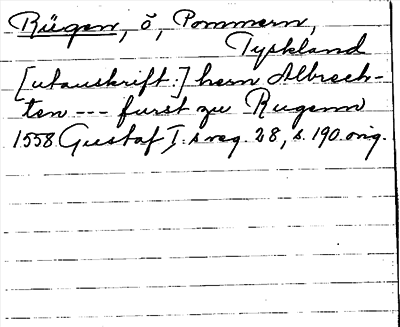 Rügen, ö, Pommern,
Tyskland
[utanskrift:] hern Albrech-
ten --- furst zu Rugenn
1558 Gustaf I:s reg. 28, s. 190. orig.